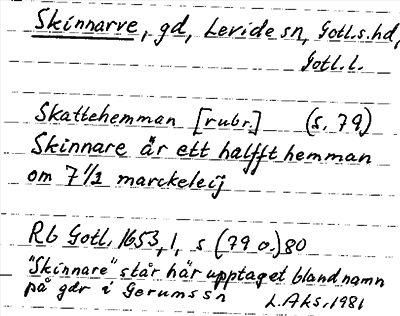 Skinnarve, gd, Levide sn, Gotl.s.hd,
Gotl.l.
Skattehemman [rubr.] (s. 79)
Skinnare är ett halfft hemman
om 7 1/2 marckeleij
Rb Gotl. 1653,1, s (79 o.) 80
"Skinnare" står här upptaget bland namn
på gdr i Gerums sn L.Aks. 1981